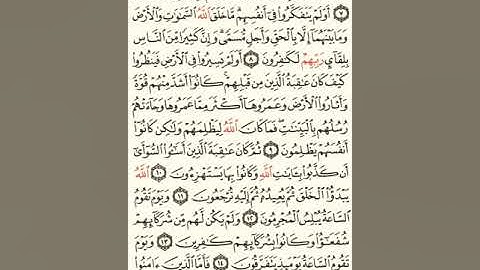 ٧ أَوَلَمْ يَتَفَكَّرُوا۟ فِىٓ أَنفُسِهِم مَّا خَلَقَ ٱللَّهُ ٱلسَّمَٰوَٰتِ وَٱلْأَرْضَ
وَمَا بَيْنَهُمَآ إِلَّا بِٱلْحَقِّ وَأَجَلٍ مُّسَمًّى وَإِنَّ كَثِيرًا مِّنَ ٱلنَّاسِ
بِلِقَآئِ رَبِّهِمْ لَكَٰفِرُونَ ٨ أَوَلَمْ يَسِيرُوا۟ فِى ٱلْأَرْضِ فَيَنظُرُوا۟
كَيْفَ كَانَ عَٰقِبَةُ ٱلَّذِينَ مِن قَبْلِهِمْ كَانُوٓا۟ أَشَدَّ مِنْهُمْ قُوَّةً
وَأَثَارُوا۟ ٱلْأَرْضَ وَعَمَرُوهَآ أَكْثَرَ مِمَّا عَمَرُوهَا وَجَآءَتْهُمْ
رُسُلُهُم بِٱلْبَيِّنَٰتِ فَمَا كَانَ ٱللَّهُ لِيَظْلِمَهُمْ وَلَٰكِن كَانُوٓا۟
أَنفُسَهُمْ يَظْلِمُونَ ٩ ثُمَّ كَانَ عَٰقِبَةَ ٱلَّذِينَ أَسَٰٓـُٔوا۟ ٱلسُّوٓأَىٰٓ
أَن كَذَّبُوا۟ بِـَٔايَٰتِ ٱللَّهِ وَكَانُوا۟ بِهَا يَسْتَهْزِءُونَ ١٠ ٱللَّهُ
يَبْدَؤُا۟ ٱلْخَلْقَ ثُمَّ يُعِيدُهُۥ ثُمَّ إِلَيْهِ تُرْجَعُونَ ١١ وَيَوْمَ تَقُومُ
ٱلسَّاعَةُ يُبْلِسُ ٱلْمُجْرِمُونَ ١٢ وَلَمْ يَكُن لَّهُم مِّن شُرَكَآئِهِمْ
شُفَعَٰٓؤُا۟ وَكَانُوا۟ بِشُرَكَآئِهِمْ كَٰفِرِينَ ١٣ وَيَوْمَ
تَقُومُ ٱلسَّاعَةُ يَوْمَئِذٍ يَتَفَرَّقُونَ ١٤ فَأَمَّا ٱلَّذِينَ ءَامَنُوا۟